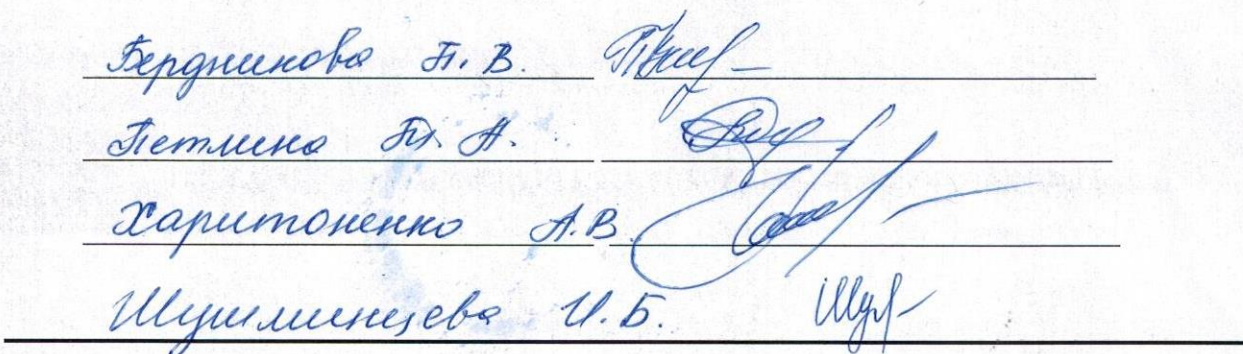 Бердникова П. В.
Петлина А.
Харитоненко А.В.
Шушминцева И. Б.